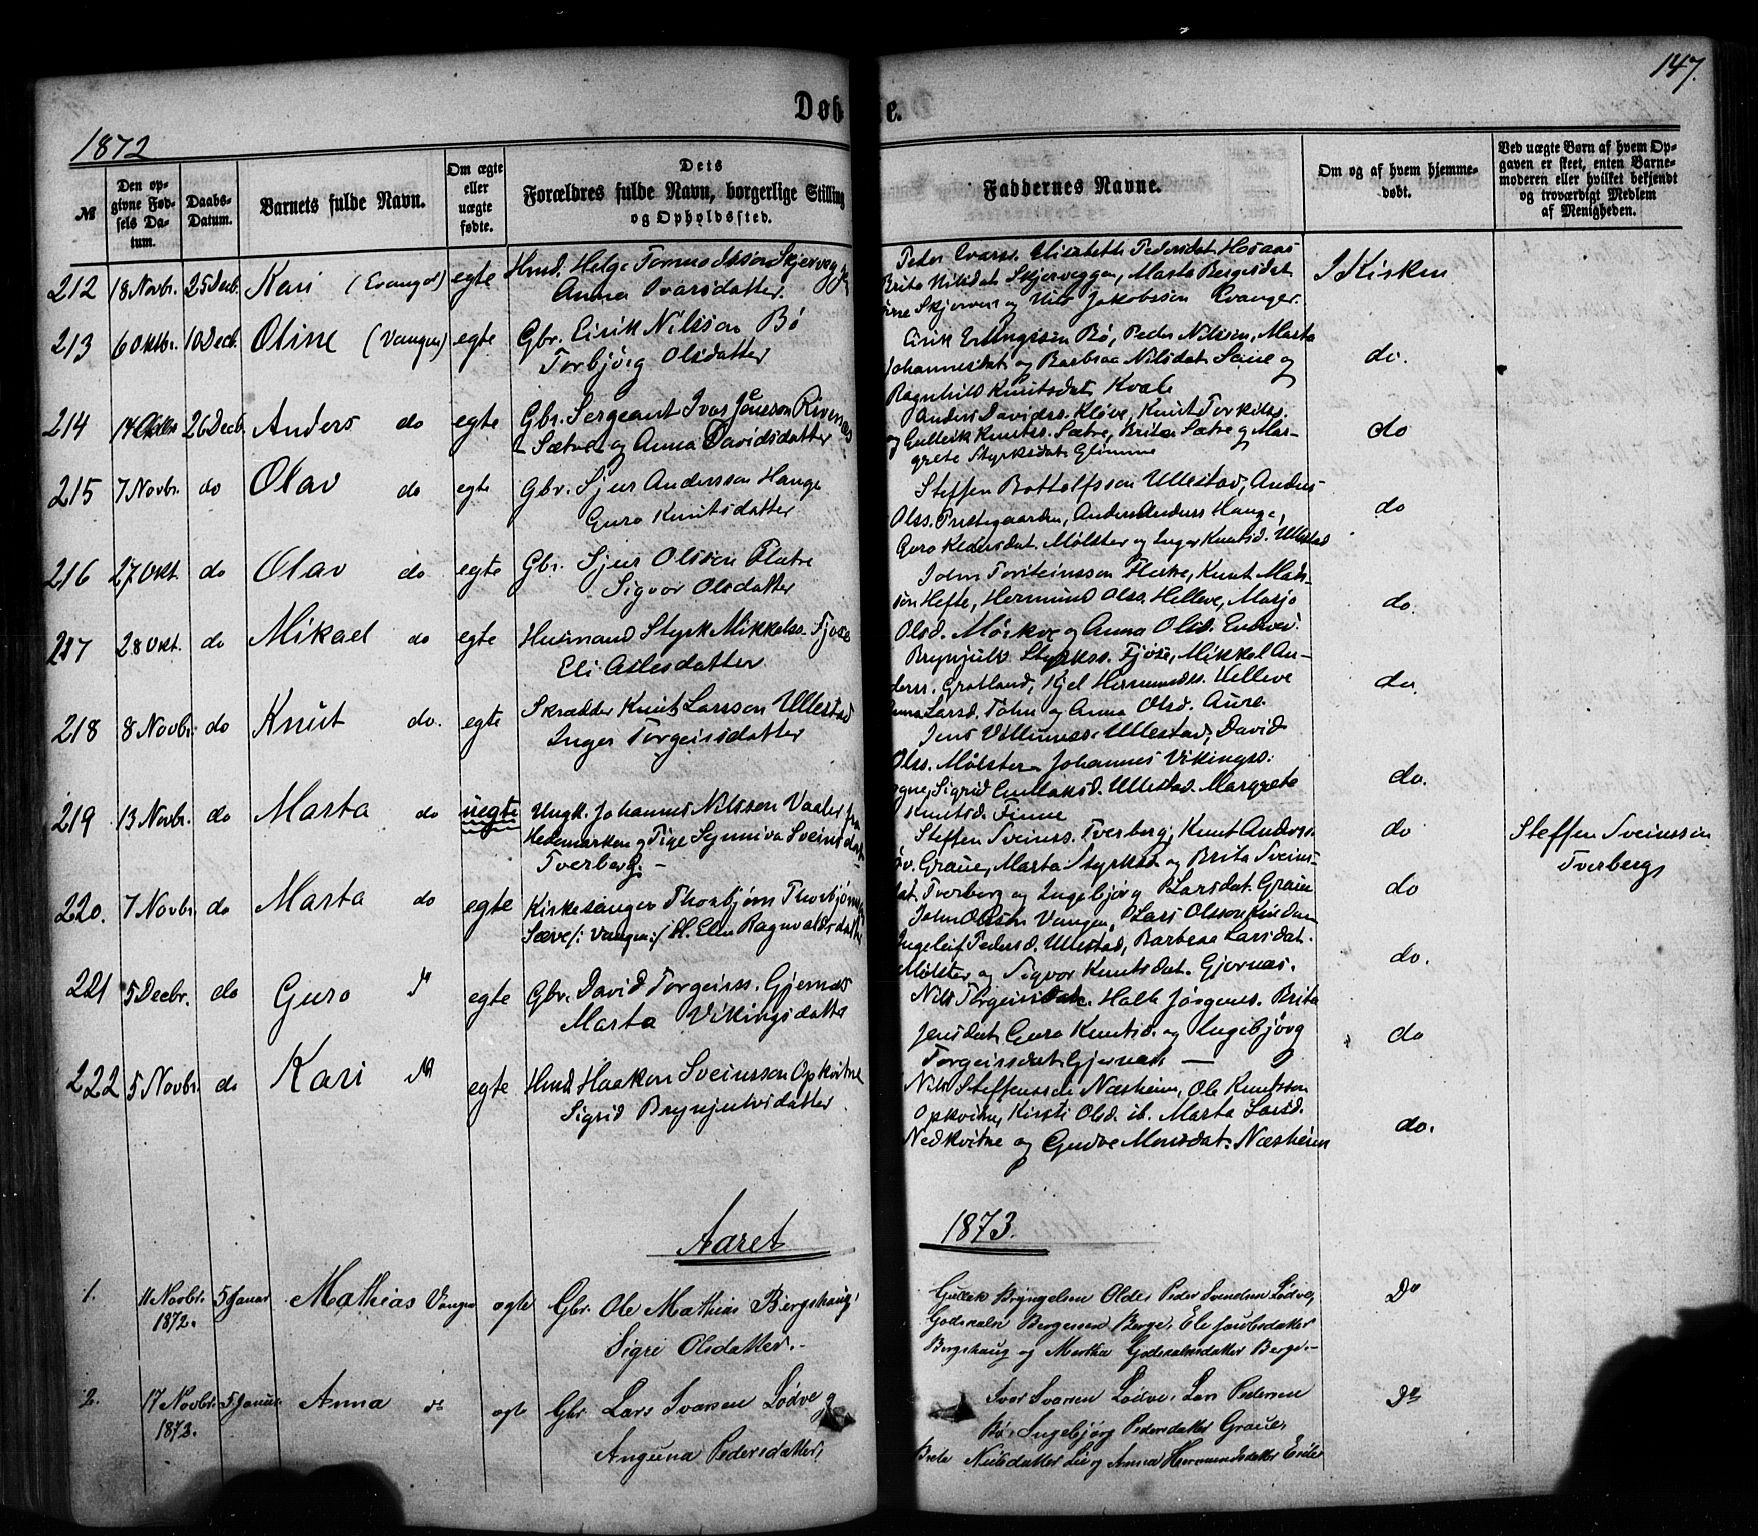 147.
Døbte.
1872
№
Den opgivne Fødsels Datum.
Daabs-Datum.
Barnets fulde Navn.
Om ægte eller uægte fødte.
Dets Forældres fulde Navn, borgerlige Stilling og Opholdssted.
Faddernes Navne.
Om og af hvem hjemmedøbt.
Ved uægte Børn af hvem Opgaven er skeet, enten Barnemoderen eller hvilket bekjendt og troværdigt Medlem af Menigheden.
212 18 Novbr. 25 Decb. Kari (Evanger) egte Hmd. Helge
Anna Ivarsdatter.
Peder Ivarss. Elisabeth Pedersdat
Brita Nilsdat Skjerveggen, Marta Bergesdat
Skjerven og Nils Jakobsson Evanger.
I Kirken
213 6 Oktbr. 10 Decb. Oline (Vangen) egte Gbr. Eirik Nilsson Bø
Torbjørg Olsdatter
Eirik Erlingssen Bø, Peder Nilssen, Marta
Johannesdat og Barbraa Nilsdat Saue og
Ragnhild Knutsdat Kvale
do.
214 26 Decb. Anders do egte Gbr. Sergeant Ivar Jonsson
Sætre og Anna Davidsdatter
Anders Davidss. Kløve, Knut Torkildss.
og Gulleik Knutss. Sætre, Brita Sætre og Mar-
grete Styrksdat Glimme
do
215 7 Novbr. do Olav do egte Gbr. Sjur Andersson Hauge
Guro Knutsdatter
Steffen Bottolfsson Ullestad, Anders
Olss. Prestegaarden, Anders Anderss Hauge,
Guro Pedersdat. Mølster og Inger Knutsd. Ullestad
do
216 27 Okt. do Olav do egte Gbr. Sjur Olsson Flatre
Sigvor Olsdatter
John Torsteinsson Knut Mads-
son Hefte, Hermund Olss. Helleve, Marjo
Olsd. Mørkve og Anna Olsd.
do.
217 28 Okt. do Mikael do egte Husmand Styrk Mikkelss. Fjose
Eli Atlesdatter
Brynjulv Styrkss. Fjose, Mikkel An-
derss. Grotland, Kjel Hermundss. Helleve
Anna Larsd. Tøhn og Anna Olsd. Aure.
do.
218 8 Novbr. do Knut do. egte Skrædder Knut Larsson Ullestad
Inger Torgeirsdatter
Jens Ullestad, David
Olss. Mølster Johannes Vikingss.
Sigrid Ullestad Margrete
Knutsd. Finne
do.
219 13 Novbr. do Marta do uegte Ungk. Johannes Nilsson Vaaler fra
Hedemarken og Pige Synniva Sveinsdat
Tverberg. –
Steffen Sveinss. Tverberg, Knut Anderss.
Graue, Marta Styrksd og Brita Sveins-
dat Tverberg og Ingebjørg Larsdat. Graue
do
Steffen Sveinsson
Tverberg
220. 7 Novbr. do Marta do egte Kirkesanger Thorbjørn
Sæve /: Vangen :/ H. Elen Ragnvaldsdatter
John Olsen Vangen, Lars Olsson
Ingeleif Pedersd. Ullestad, Barbraa Larsdat.
Mølster og Sigvor Knutsdat. Gjernæs.
do
221 5 Decbr. do Guro egte Gbr. David Torgeirss. Gjernæs
Marta Vikingsdatter
Nils Halle Jørgens. Brita
Jensdat Guro Knutsd. og Ingebjørg
Torgeirsdat Gjernæs. –
do.
222 5 Novbr. do Kari egte Hmd Haakon Sveinsson Opkvitne
Sigrid Brynjulvsdatter.
Nils Steffensson Næsheim, Ole Knutsson
Opkvitne, Kirsti Olsd. ib. Marta Larsd.
Nedkvitne og Gudve Monsdat. Næsheim
do
do.
Aaret 1873.
1. 11 Novbr. 1872. 5 Januar Mathias Vangen egte Gbr. Ole Mathias Bergshaug,
Sigri Olsdatter.
Gullek Bryngelsen Olde, Peder Svendsen Lødve,
Godskalk Bergesen Berge, Eli Jacobsdatter
Bergshaug og Martha Godskalksdatter Berge.–
Do
2. 17 Novbr. 1872. 5 Januar Anna do egte Gbr. Lars Ivarsen Lødve og
Anguna Pedersdatter,
Ivar Ivarsen Lødve, Lars Pedersen
Bø, Ingebjørg Pedersdatter Graue,
Brita Nielsdatter Lie og Anna Hermundsdatter
Do